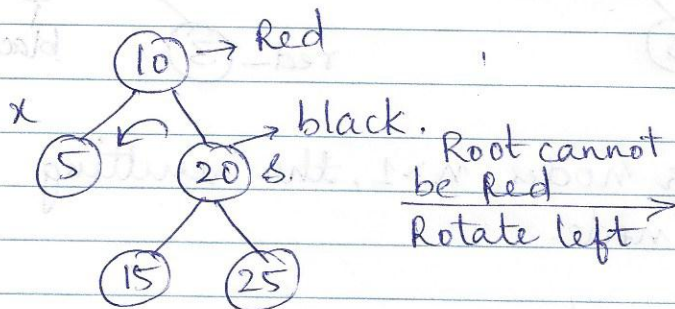 10 → Red
x
5
20 s. → black.
Root cannot
be Red
Rotate left
15
25